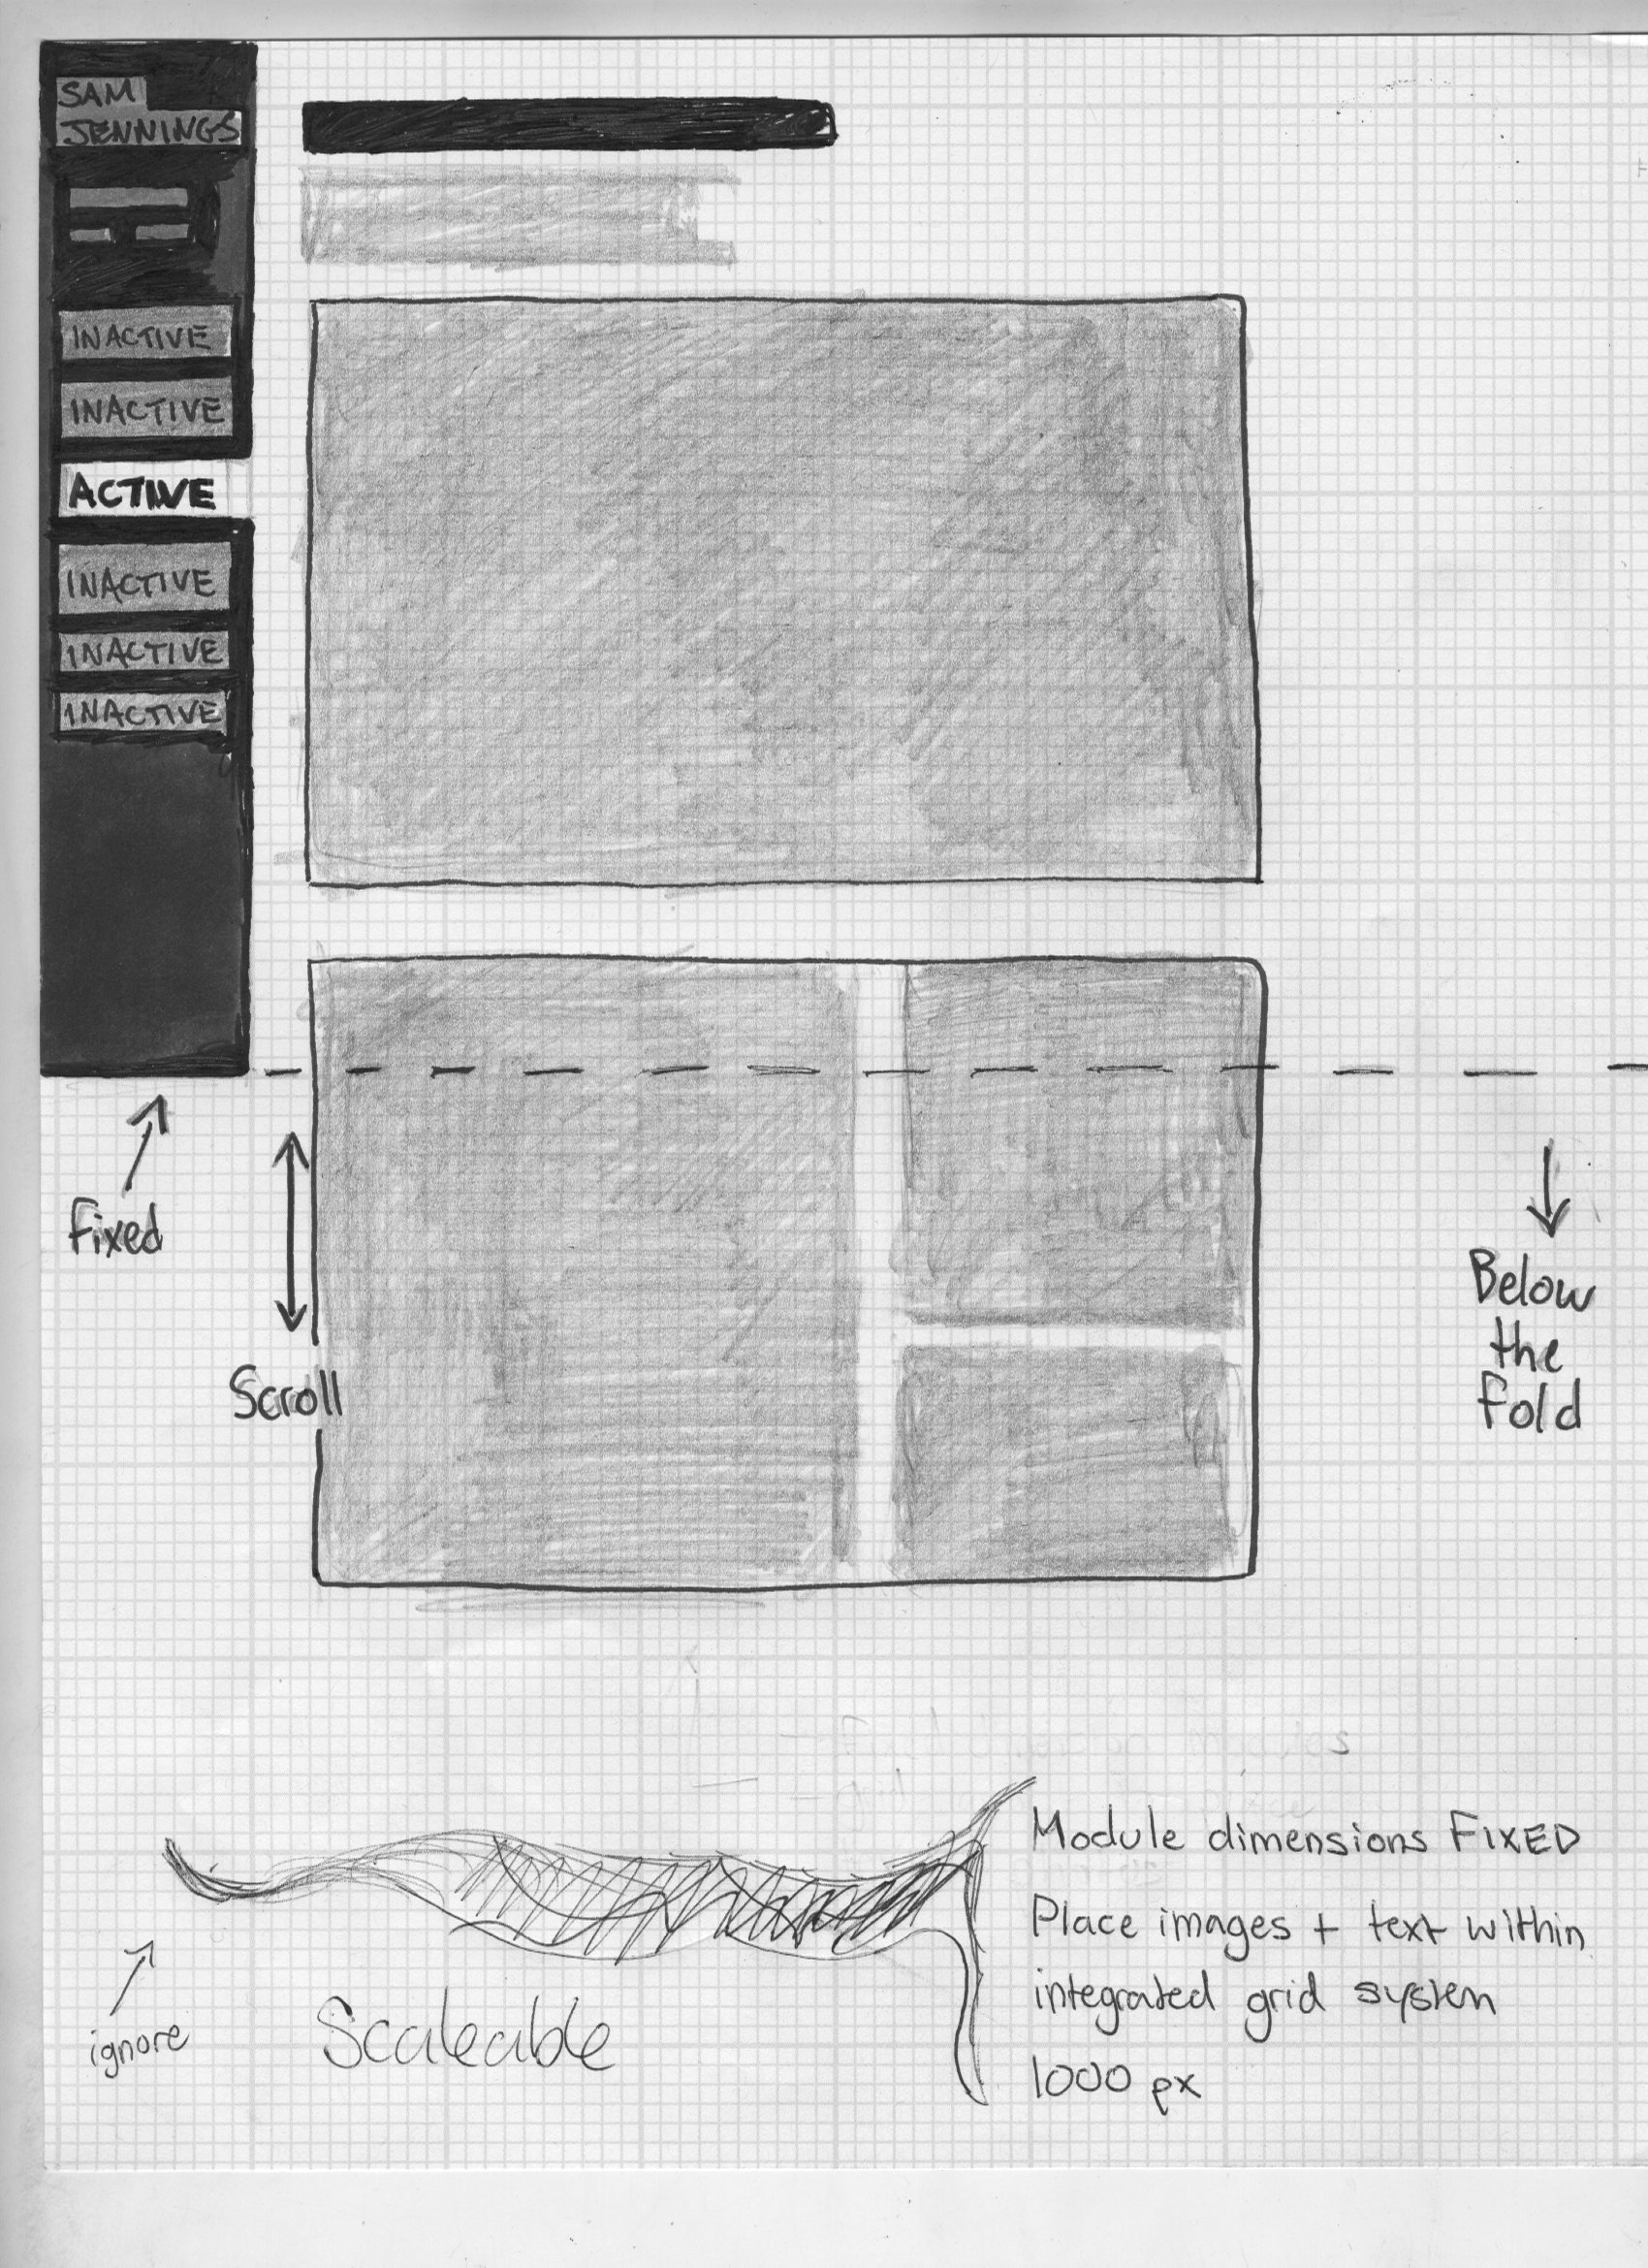 SAM
JENNINGS
INACTIVE
INACTIVE
ACTIVE
INACTIVE
INACTIVE
INACTIVE
Fixed
Scroll
Below
the
fold
ignore
Scaleable
Module dimensions FIXED
Place images + text within
integrated grid system
1000 px